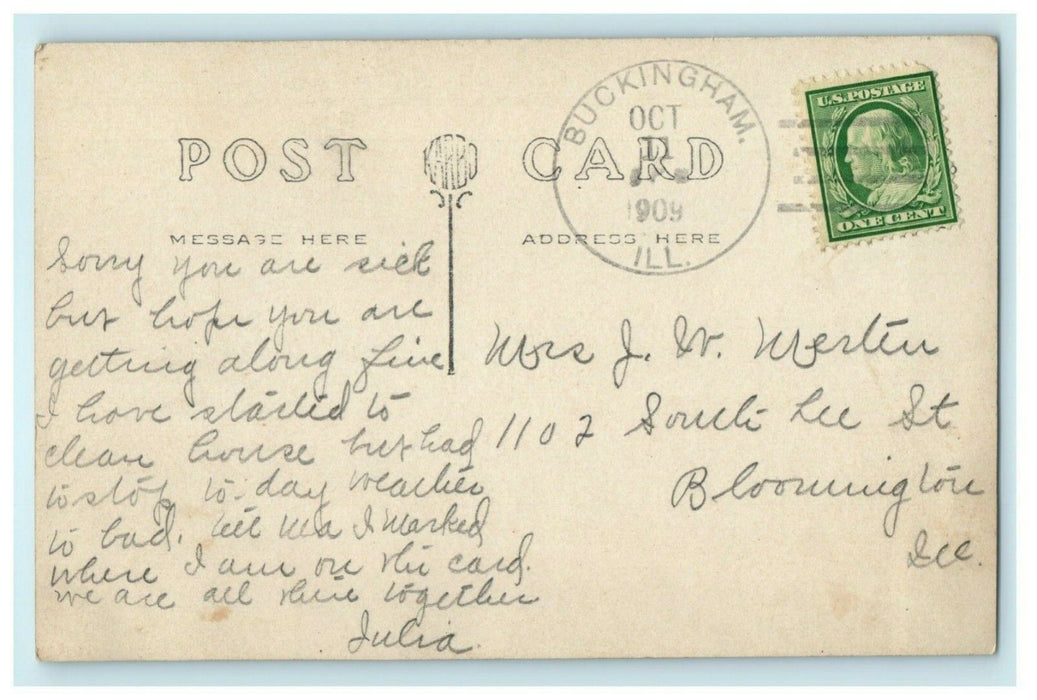 POST CARD
MESSAGE HERE
ADDRESS HERE
BUCKINGHAM.
OCT
1909
ILL.
U.S. POSTAGE
ONE CENT
Sorry you are sick
but hope you are
getting along fine
I have started to
clean house but had
to stop to-day weather
to bad. tell Ma I marked
where I am on the card.
we are all there together
Julia
Mrs J. W. Merten
1102 South Lee St
Bloomington
Ill.